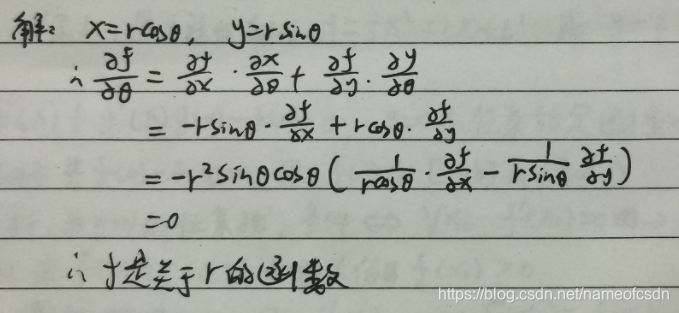 解: x=rcosθ, y=rsinθ
∴ ∂f/∂θ = ∂f/∂x · ∂x/∂θ + ∂f/∂y · ∂y/∂θ
= -rsinθ · ∂f/∂x + rcosθ · ∂f/∂y
= -r²sinθcosθ ( 1/rcosθ · ∂f/∂x - 1/rsinθ ∂f/∂y )
=0
∴ f是关于r的函数
https://blog.csdn.net/nameofcsdn